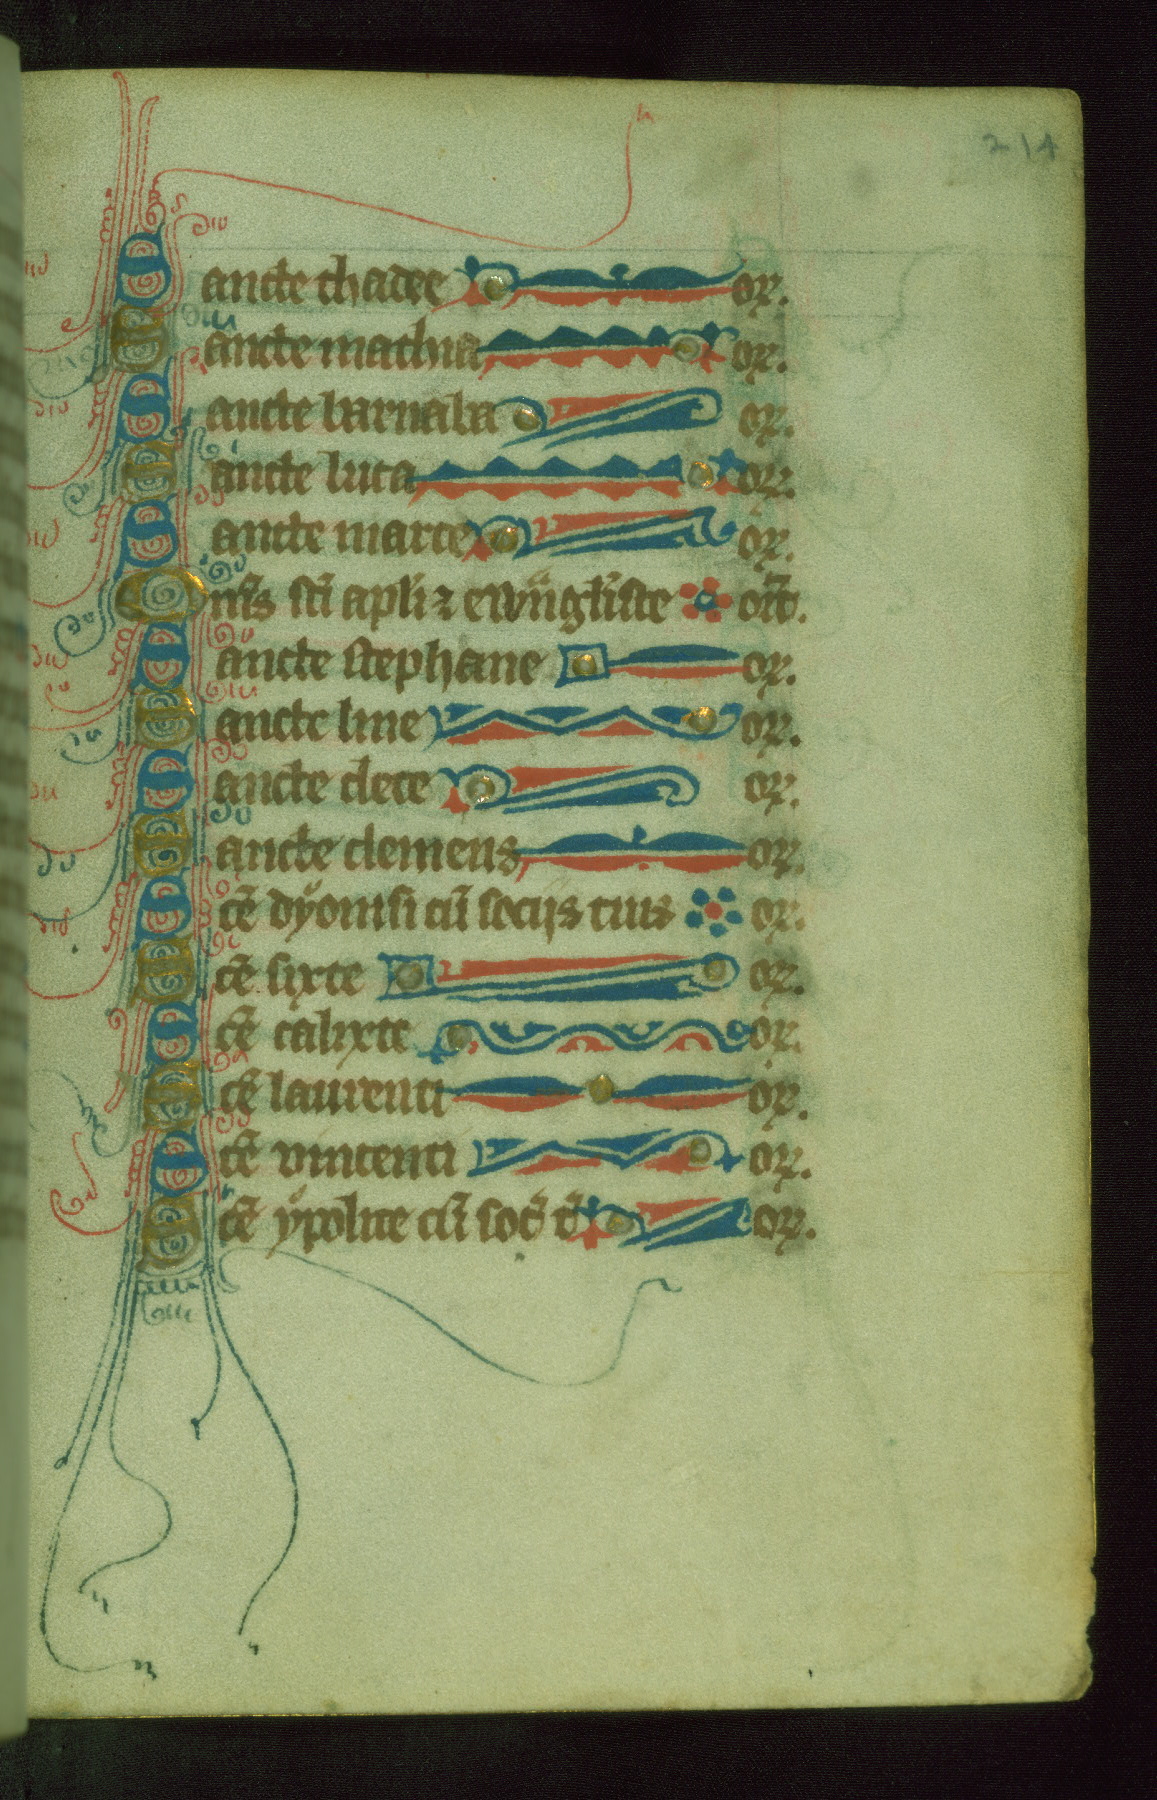 214
Sancte thadee or.
Sancte mathia or.
Sancte barnaba or.
Sancte luca or.
Sancte marce or.
Om̄s sc̄i apl̄i ⁊ ewāgl̄iste or̄t.
Sancte stephane or.
Sancte line or.
Sancte clete or.
Sancte clemens or.
Sc̄e dyonisi cū socijs tuis or.
Sc̄e sixte or.
Sc̄e calixte or.
Sc̄e laurenti or.
Sc̄e vincenti or.
Sc̄e ypolite cū soc̄ t̄ or.